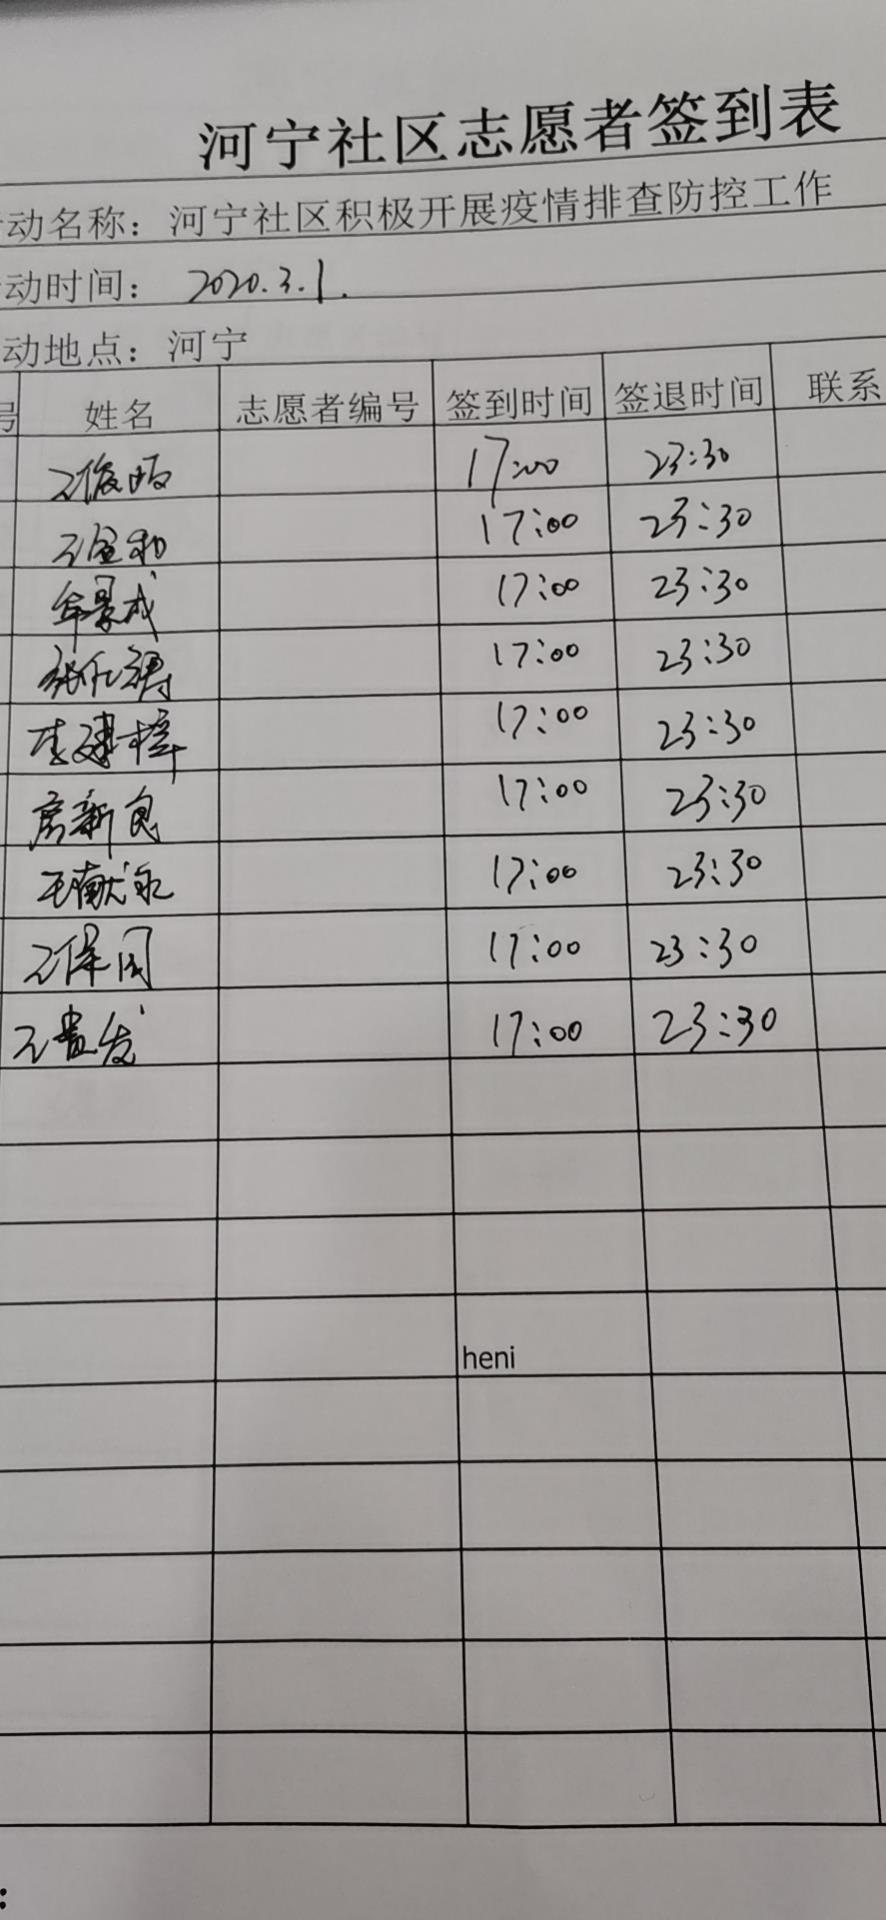 河宁社区志愿者签到表
动名称：河宁社区积极开展疫情排查防控工作
动时间： 2020.3.1.
动地点：河宁
号 姓名 志愿者编号 签到时间 签退时间 联系
17:00 23:30
17:00 23:30
17:00 23:30
17:00 23:30
李建樟 17:00 23:30
房新良 17:00 23:30
王献永 17:00 23:30
17:00 23:30
王贵发 17:00 23:30
heni
: